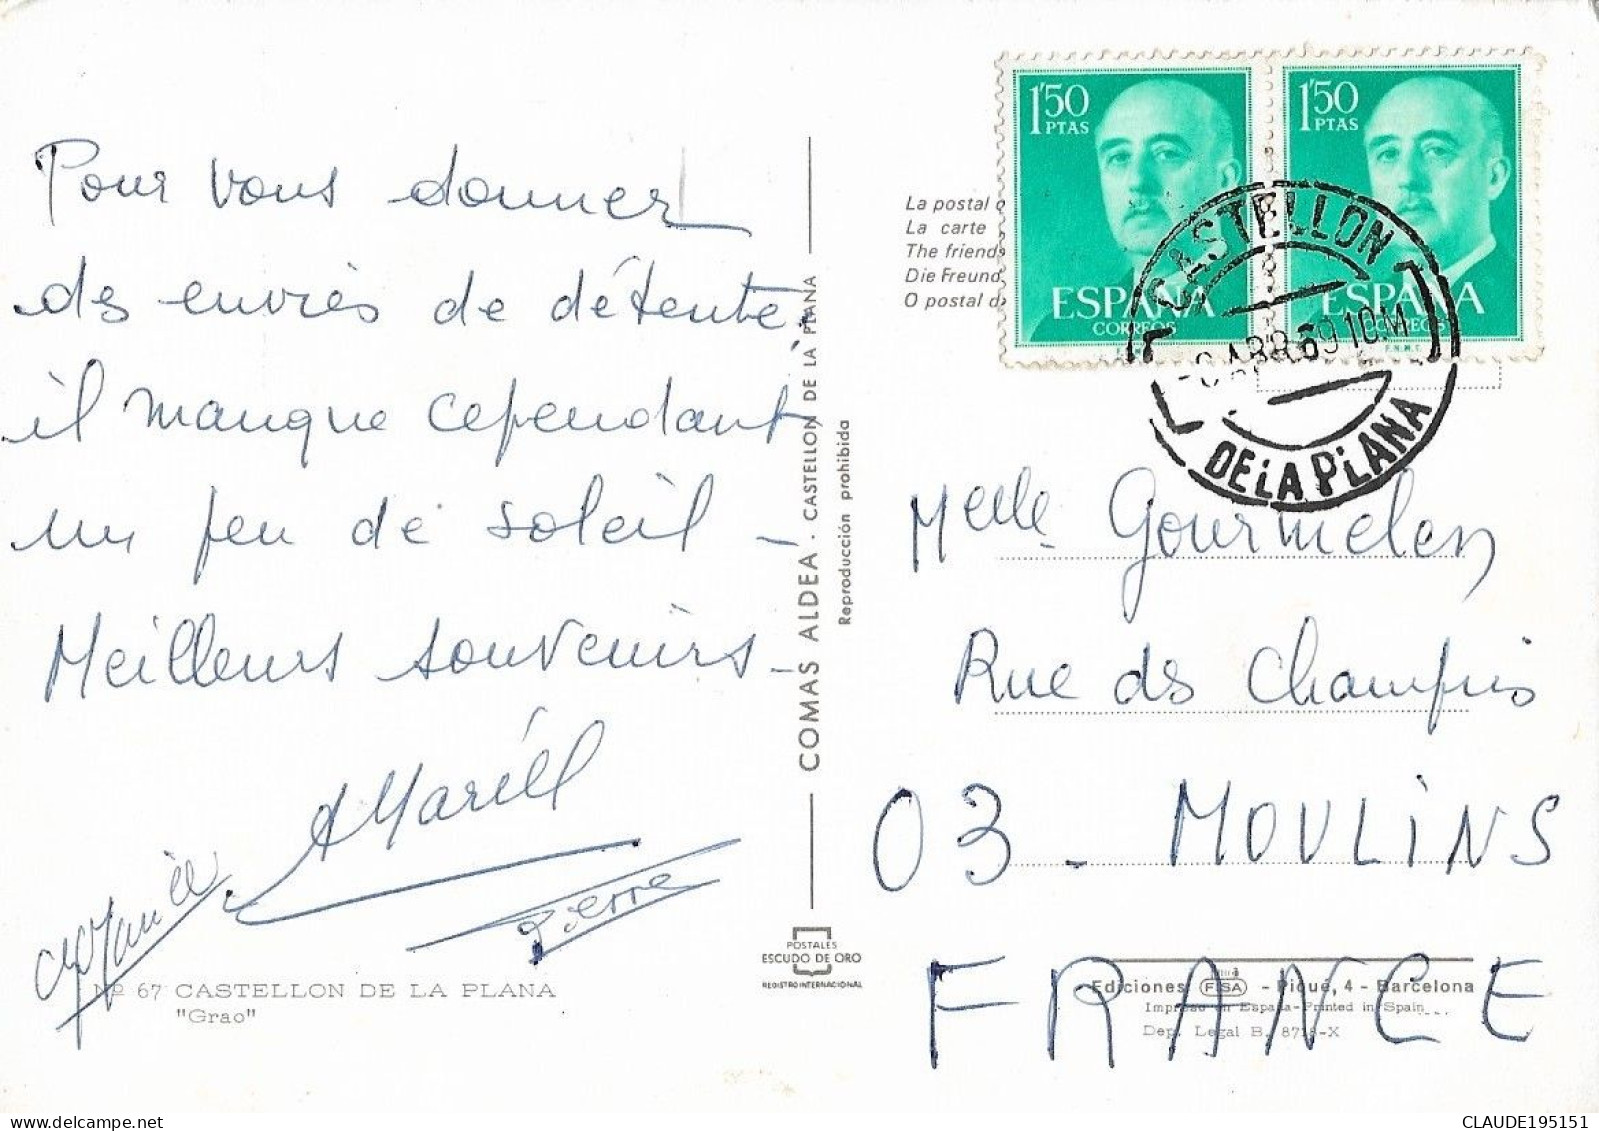 Pour vous donner
des envies de détente,
il manque cependant
un peu de soleil -
Meilleurs souvenirs -
Pierre
Nº 67 CASTELLON DE LA PLANA
"Grao"
COMAS ALDEA - CASTELLON DE LA PLANA
Reproducción prohibida
POSTALES
ESCUDO DE ORO
REGISTRO INTERNACIONAL
La postal
La carte
The friends
Die Freund
O postal d
1'50
PTAS
ESPAÑA
CORREOS
1'50
PTAS
ESPAÑA
CORREOS
F.N.M.T.
CASTELLON
ABR 69 10M
DE LA PLANA
Melle Gourmelen
Rue des Champins
03 - MOULINS
FRANCE
Ediciones FISA - Piqué, 4 - Barcelona
Impreso en España - Printed in Spain
Dep. Legal B. 8718-X
CLAUDE195151